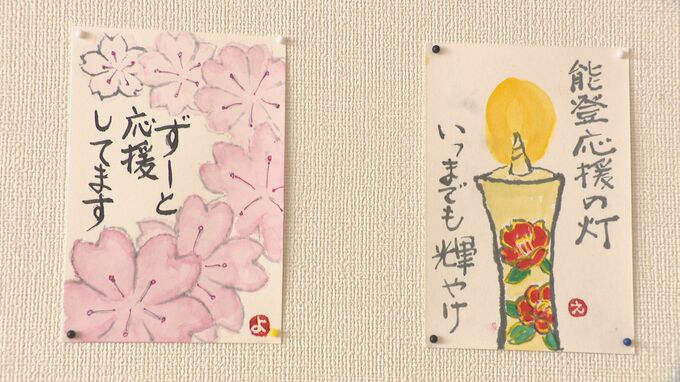 ずーっと
応援
してます
よ
能登応援の灯
いつまでも輝やけ
え